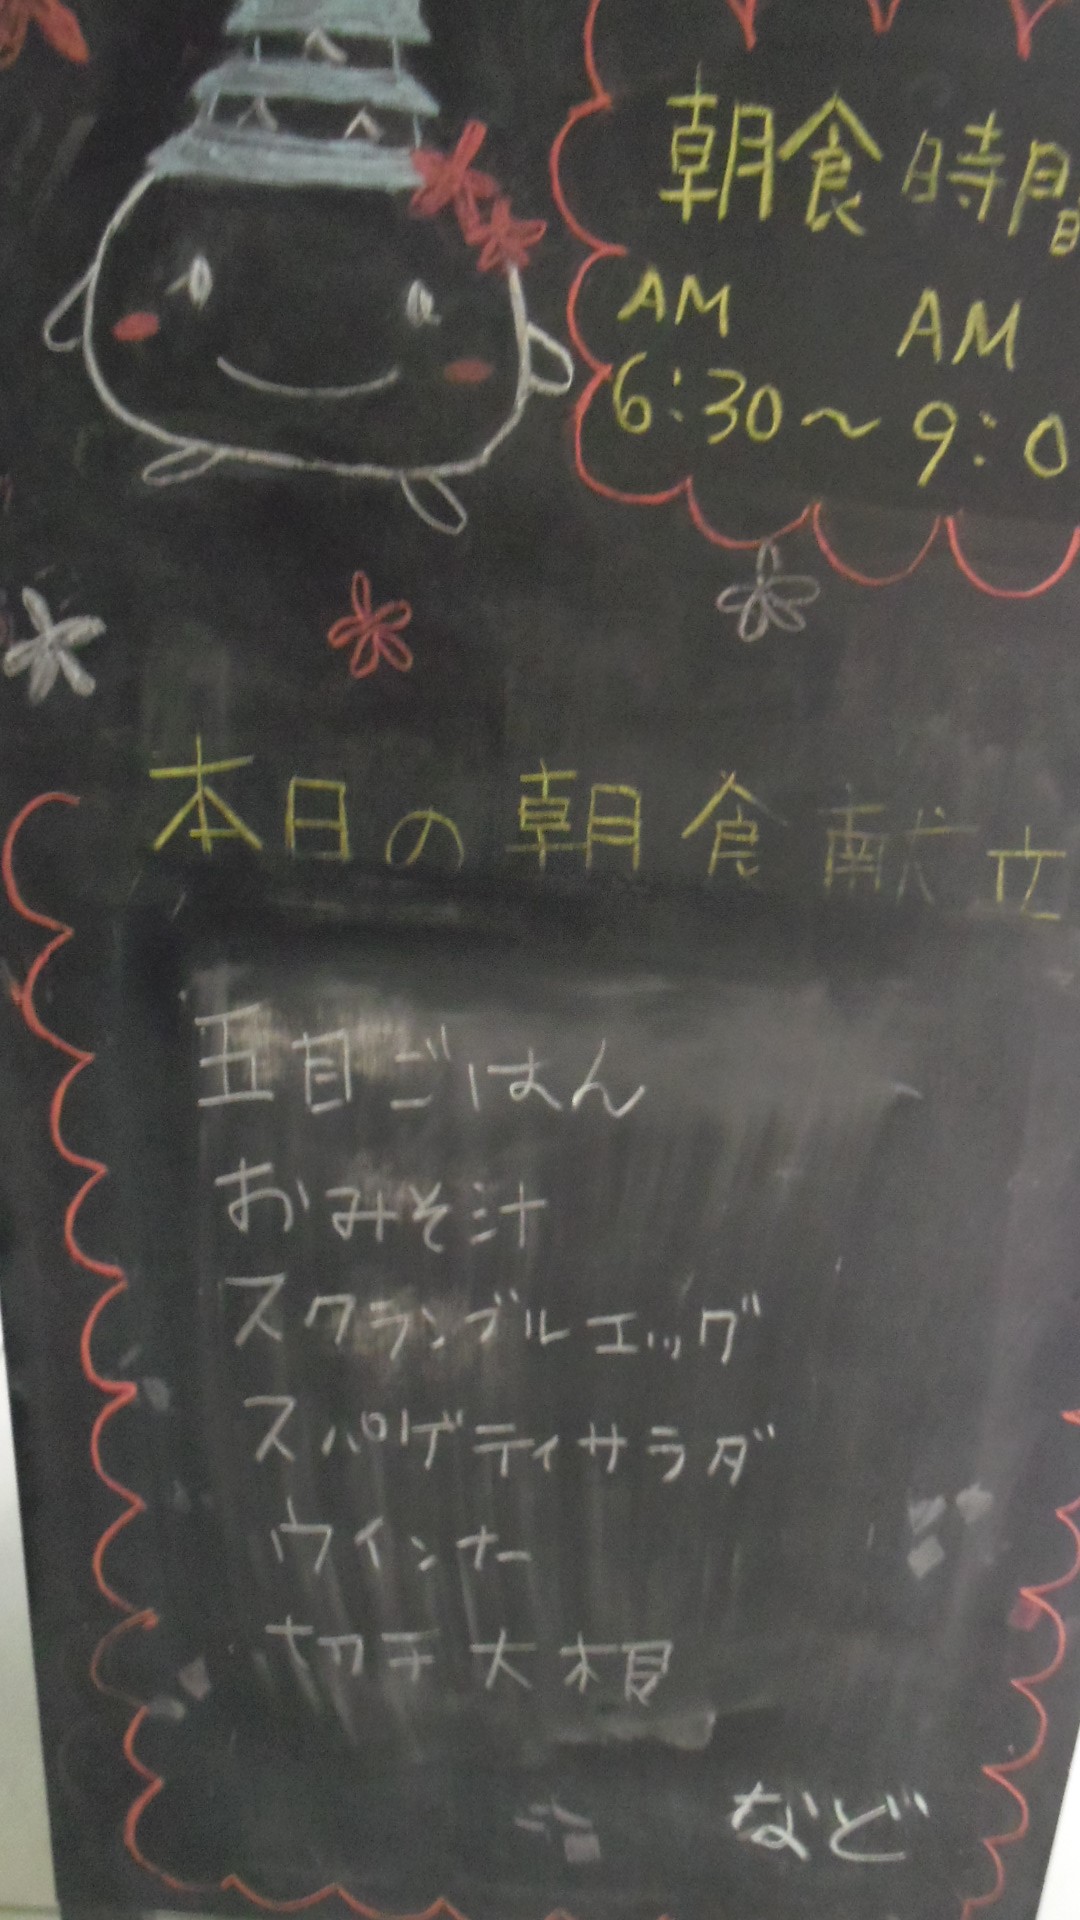 朝食時間
AM AM
6:30〜9:0
本日の朝食献立
五目ごはん
おみそ汁
スクランブルエッグ
スパゲティサラダ
ウインナー
切干大根
など